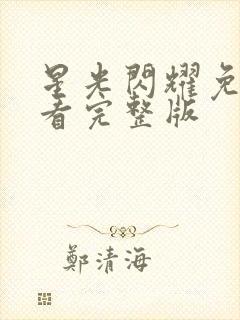 星光閃耀免
看完整版
鄭清海